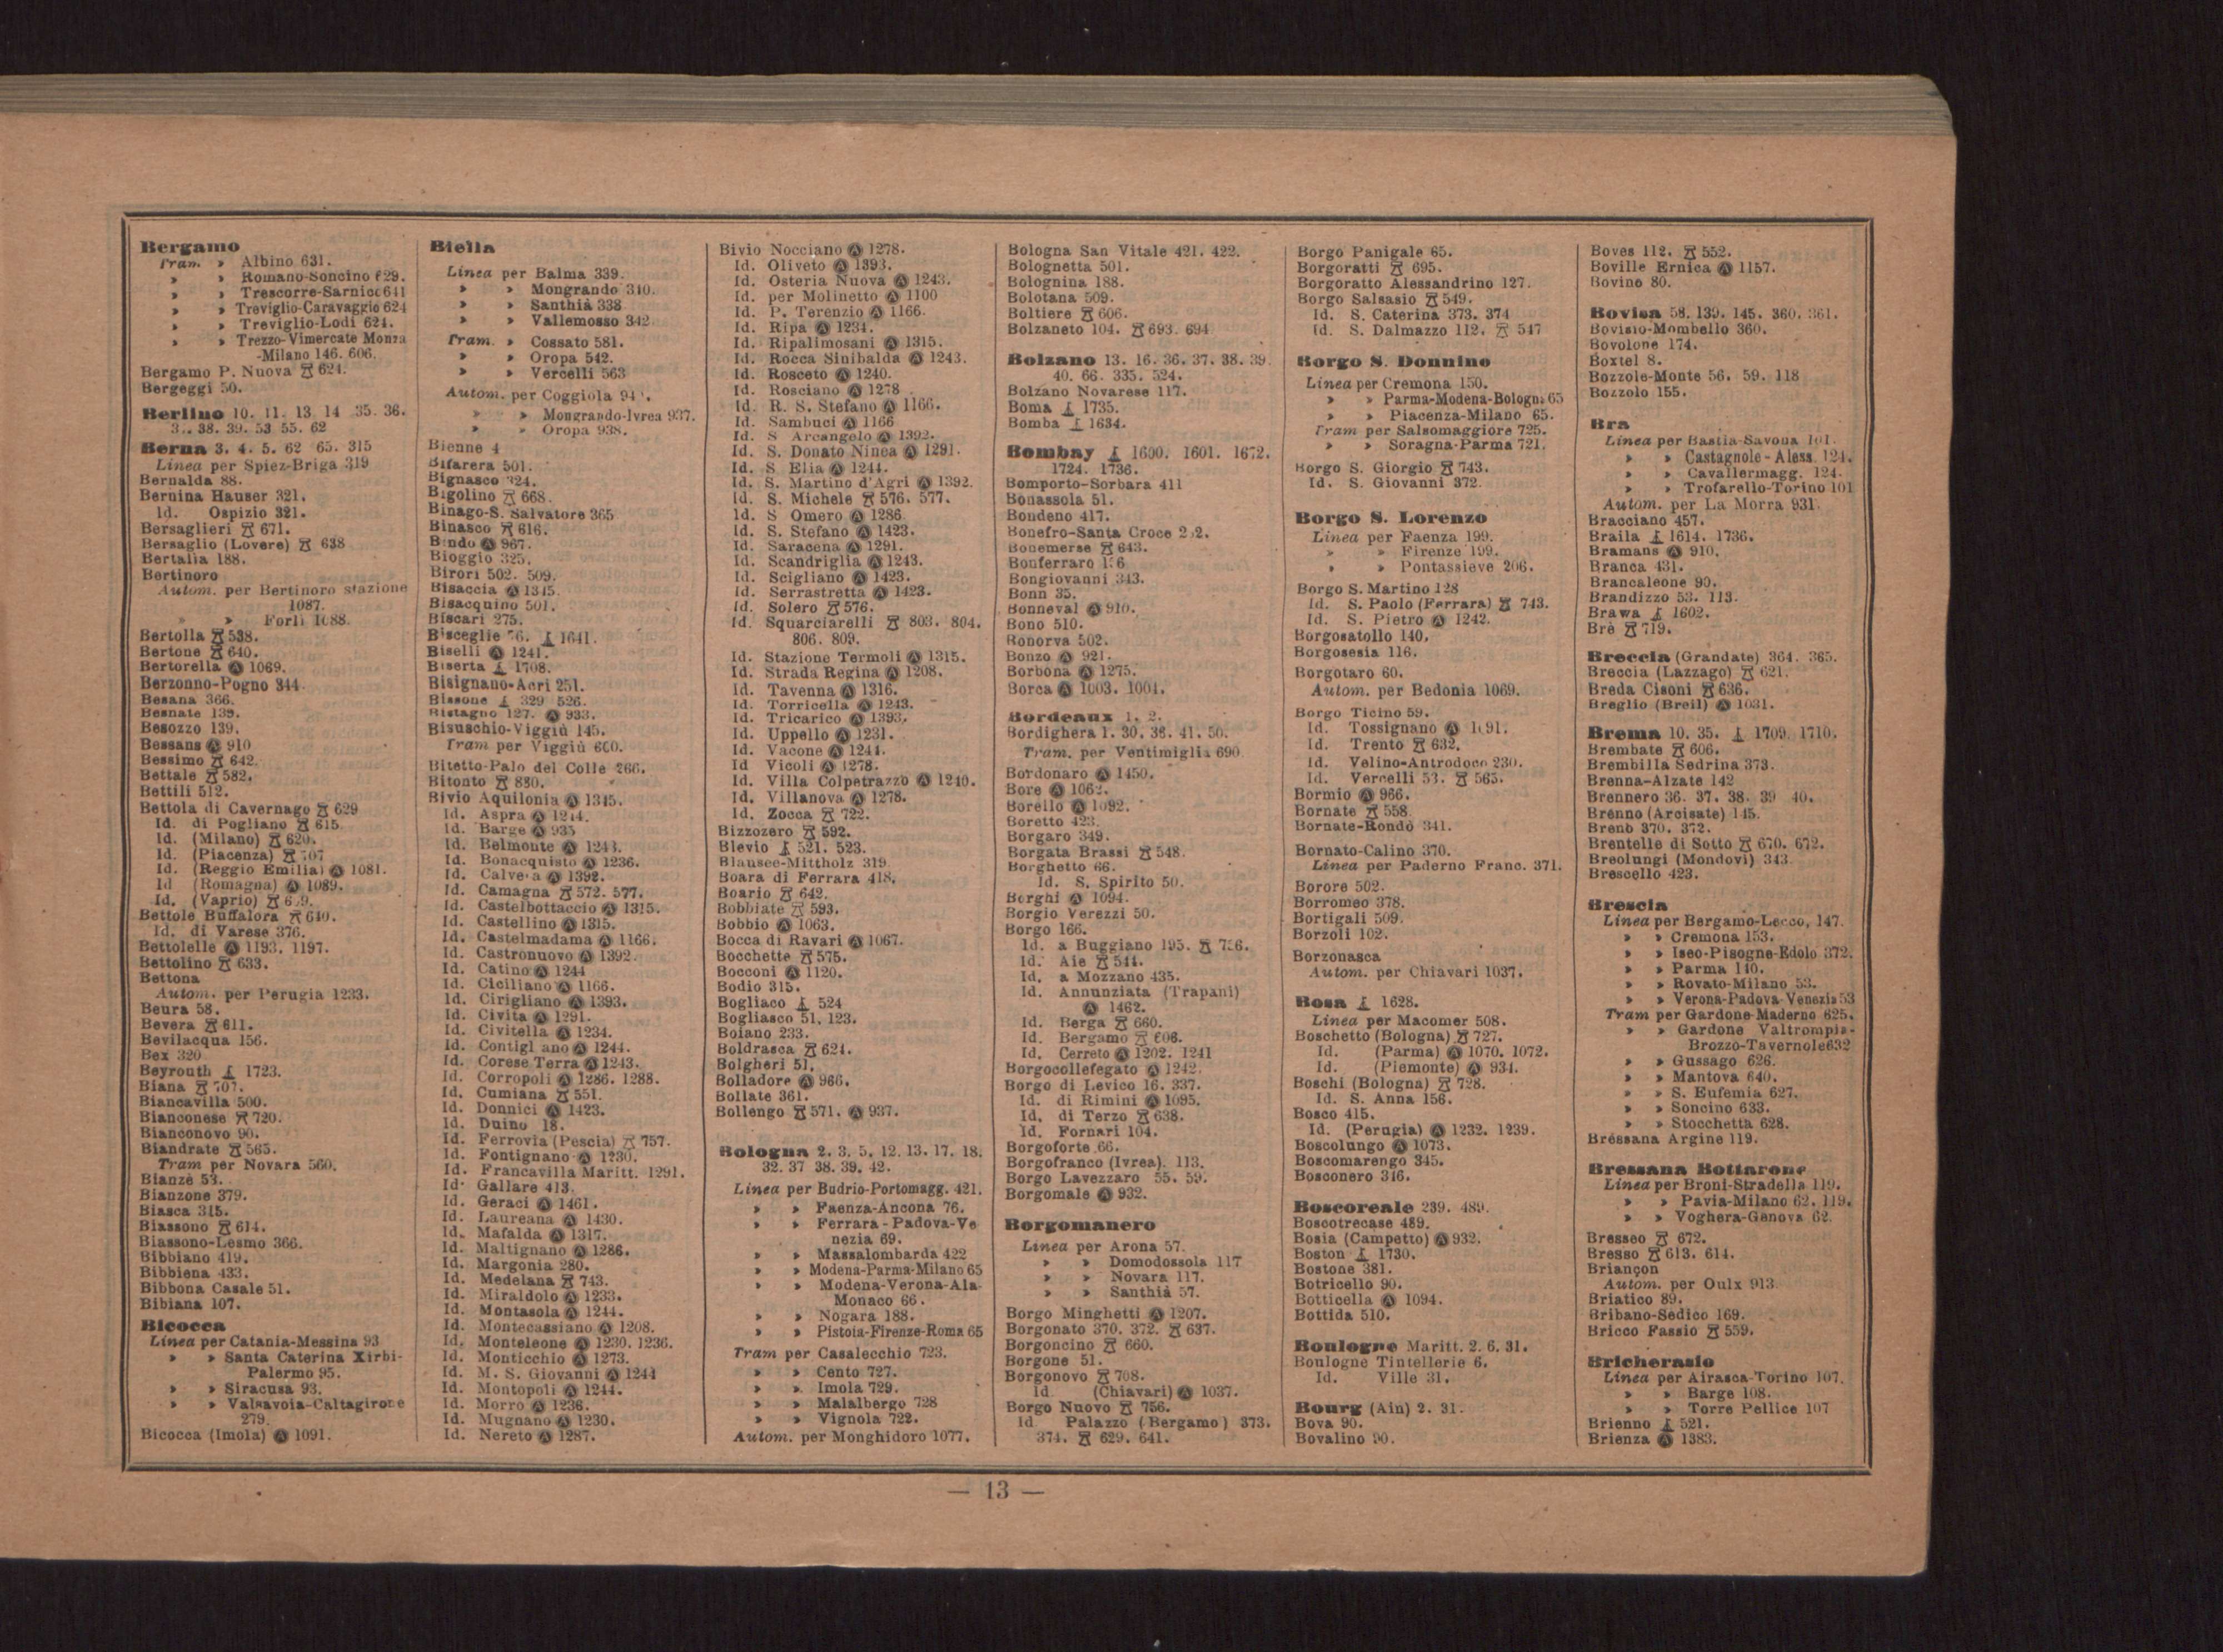 Bergamo
Tram. » Albino 631.
» » Romano-Soncino 629.
» » Trescorre-Sarnico 641
» » Treviglio-Caravaggio 624
» » Treviglio-Lodi 624.
» » Trezzo-Vimercate Monza
-Milano 146. 606.
Bergamo P. Nuova 624.
Bergeggi 50.
Berlino 10. 11. 13 14 35. 36.
38. 39. 53 55. 62
Berna 3. 4. 5. 62 65. 315
Linea per Spiez-Briga 319
Bernalda 88.
Bernina Hauser 321.
Id. Ospizio 321.
Bersaglieri 671.
Bersaglio (Lovere) 638
Bertalia 188.
Bertinoro
Autom. per Bertinoro stazione
1087.
» » Forlì 1088.
Bertolla 538.
Bertone 640.
Bertorella Ⓐ 1069.
Berzonno-Pogno 344
Besana 366.
Besnate 139.
Besozzo 139.
Bessans Ⓐ 910
Bessimo 642
Bettale 582.
Bettili 512.
Bettola di Cavernago 629
Id. di Pogliano 615.
Id. (Milano) 620.
Id. (Piacenza) 707
Id. (Reggio Emilia) Ⓐ 1081.
Id (Romagna) Ⓐ 1089.
Id. (Vaprio)
Bettole Buffalora 640.
Id. di Varese 376.
Bettolelle Ⓐ 1193. 1197.
Bettolino 633.
Bettona
Autom. per Perugia 1233.
Beura 58.
Bevera 611.
Bevilacqua 156.
Bex 320
Beyrouth 1723.
Biana 707.
Biancavilla 500.
Bianconese 720.
Bianconovo 90.
Biandrate 565.
Tram per Novara 560.
Bianzè 53.
Bianzone 379.
Biasca 315.
Biassono 614.
Biassono-Lesmo 366.
Bibbiano 419.
Bibbiena 433.
Bibbona Casale 51.
Bibiana 107.
Bicocca
Linea per Catania-Messina 93
» » Santa Caterina Xirbi-
Palermo 95.
» » Siracusa 93.
» » Valsavoia-Caltagirone
279.
Bicocca (Imola) Ⓐ 1091.
Biella
Linea per Balma 339.
» » Mongrando 340.
» » Santhià 338
» » Vallemosso 342
Tram. » Cossato 581.
» » Oropa 542.
» » Vercelli 563
Autom. per Coggiola
» » Mongrando-Ivrea 937.
» » Oropa 938.
Bienne 4
Bifarera 501.
Bignasco 324.
Bigolino 668.
Binago-S. Salvatore 365
Binasco 616.
Bindo Ⓐ 967.
Bioggio 325.
Birori 502. 509.
Bisaccia Ⓐ 1345.
Bisacquino 501.
Biscari 275.
Bisceglie 76. 1641.
Biselli Ⓐ 1241.
Biserta 1708.
Bisignano-Acri 251.
Bissone 329 526.
Bistagno 127. Ⓐ 933.
Bisuschio-Viggiù 145.
Tram per Viggiù 600.
Bitetto-Palo del Colle 266.
Bitonto 880.
Bivio Aquilonia Ⓐ 1345.
Id. Aspra Ⓐ 1244.
Id. Barge Ⓐ 935
Id. Belmonte Ⓐ 1243.
Id. Bonacquisto Ⓐ 1236.
Id. Calvera Ⓐ 1392.
Id. Camagna 572. 577.
Id. Castelbottaccio Ⓐ 1315.
Id. Castellino Ⓐ 1315.
Id. Castelmadama Ⓐ 1166.
Id. Castronuovo Ⓐ 1392
Id. Catino Ⓐ 1244
Id. Ciciliano Ⓐ 1166.
Id. Cirigliano Ⓐ 1393.
Id. Civita Ⓐ 1291.
Id. Civitella Ⓐ 1234.
Id. Contigliano Ⓐ 1244.
Id. Corese Terra Ⓐ 1243.
Id. Corropoli Ⓐ 1286. 1288.
Id. Cumiana 551.
Id. Donnici Ⓐ 1423.
Id. Duino 18.
Id. Ferrovia (Pescia) 757.
Id. Fontignano Ⓐ 1230.
Id. Francavilla Maritt. 1291.
Id. Gallare 413.
Id. Geraci Ⓐ 1461.
Id. Laureana Ⓐ 1430.
Id. Mafalda Ⓐ 1317.
Id. Maltignano Ⓐ 1286.
Id. Margonia 280.
Id. Medelana 743.
Id. Miraldolo Ⓐ 1233.
Id. Montasola Ⓐ 1244.
Id. Montecassiano Ⓐ 1208.
Id. Monteleone Ⓐ 1230. 1236.
Id. Monticchio Ⓐ 1273.
Id. M. S. Giovanni Ⓐ 1244
Id. Montopoli Ⓐ 1244.
Id. Morro Ⓐ 1236.
Id. Mugnano Ⓐ 1230.
Id. Nereto Ⓐ 1287.
Bivio Nocciano Ⓐ 1278.
Id. Oliveto Ⓐ 1393.
Id. Osteria Nuova Ⓐ 1243.
Id. per Molinetto Ⓐ 1100
Id. P. Terenzio Ⓐ 1166.
Id. Ripa Ⓐ 1234.
Id. Ripalimosani Ⓐ 1315.
Id. Rocca Sinibalda Ⓐ 1243.
Id. Rosceto Ⓐ 1240.
Id. Rosciano Ⓐ 1278
Id. R. S. Stefano Ⓐ 1166.
Id. Sambuci Ⓐ 1166
Id. S Arcangelo Ⓐ 1392.
Id. S. Donato Ninea Ⓐ 1291.
Id. S Elia Ⓐ 1244.
Id. S. Martino d'Agri Ⓐ 1392.
Id. S. Michele 576. 577.
Id. S Omero Ⓐ 1286
Id. S. Stefano Ⓐ 1423.
Id. Saracena Ⓐ 1291.
Id. Scandriglia Ⓐ 1243.
Id. Scigliano Ⓐ 1423.
Id. Serrastretta Ⓐ 1423.
Id. Solero 576.
Id. Squarciarelli 803. 804.
806. 809.
Id. Stazione Termoli Ⓐ 1315.
Id. Strada Regina Ⓐ 1208.
Id. Tavenna Ⓐ 1316.
Id. Torricella Ⓐ 1243.
Id. Tricarico Ⓐ 1393.
Id. Uppello Ⓐ 1231.
Id. Vacone Ⓐ 1244.
Id Vicoli Ⓐ 1278.
Id. Villa Colpetrazzo Ⓐ 1240.
Id. Villanova Ⓐ 1278.
Id. Zocca 722.
Bizzozero 592.
Blevio 521. 523.
Blausee-Mittholz 319
Boara di Ferrara 418.
Boario 642.
Bobbiate 593.
Bobbio Ⓐ 1063.
Bocca di Ravari Ⓐ 1067.
Bocchette 575.
Bocconi Ⓐ 1120.
Bodio 315.
Bogliaco 524
Bogliasco 51. 123.
Boiano 233.
Boldrasca 624.
Bolgheri 51.
Bolladore Ⓐ 966.
Bollate 361.
Bollengo 571. Ⓐ 937.
Bologna 2. 3. 5. 12. 13. 17. 18.
32. 37 38. 39. 42.
Linea per Budrio-Portomagg. 421.
» » Faenza-Ancona 76.
» » Ferrara-Padova-Ve
nezia 69.
» » Massalombarda 422
» » Modena-Parma-Milano 65
» » Modena-Verona-Ala-
Monaco 66.
» » Nogara 188.
» » Pistoia-Firenze-Roma 65
Tram per Casalecchio 723.
» » Cento 727.
» » Imola 729.
» » Malalbergo 728
» » Vignola 722.
Autom. per Monghidoro 1077.
Bologna San Vitale 421. 422.
Bolognetta 501.
Bolognina 188.
Bolotana 509.
Boltiere 606.
Bolzaneto 104. 693. 694
Bolzano 13. 16. 36. 37. 38. 39
40. 66. 335. 524.
Bolzano Novarese 117.
Boma 1735.
Bomba 1634.
Bombay 1600. 1601. 1672.
1724. 1736.
Bomporto-Sorbara 411
Bonassola 51.
Bondeno 417.
Bonefro-Santa Croce
Bonemerse 643.
Bonferraro
Bongiovanni 343.
Bonn 35.
Bonneval Ⓐ 910.
Bono 510.
Bonorva 502.
Bonzo Ⓐ 921.
Borbona Ⓐ 1275.
Borca Ⓐ 1003. 1004.
Bordeaux 1. 2.
Bordighera 1. 30. 36. 41. 50.
Tram. per Ventimiglia 690
Bordonaro Ⓐ 1450.
Bore Ⓐ 1062.
Borello Ⓐ 1092.
Boretto 423.
Borgaro 349.
Borgata Brassi 548.
Borghetto 66.
Id. S. Spirito 50.
Borghi Ⓐ 1094.
Borgio Verezzi 50.
Borgo 166.
Id. a Buggiano 195. 756.
Id. Aie 544.
Id. a Mozzano 435.
Id. Annunziata (Trapani)
Ⓐ 1462.
Id. Berga 660.
Id. Bergamo 606.
Id. Cerreto Ⓐ 1202. 1241
Borgocollefegato Ⓐ 1242.
Borgo di Levico 16. 337.
Id. di Rimini Ⓐ 1095.
Id. di Terzo 638.
Id. Fornari 104.
Borgoforte 66.
Borgofranco (Ivrea). 113.
Borgo Lavezzaro 55. 59.
Borgomale Ⓐ 932.
Borgomanero
Linea per Arona 57.
» » Domodossola 117
» » Novara 117.
» » Santhià 57.
Borgo Minghetti Ⓐ 1207.
Borgonato 370. 372. 637.
Borgoncino 660.
Borgone 51.
Borgonovo 708.
Id (Chiavari) Ⓐ 1037.
Borgo Nuovo 756.
Id Palazzo (Bergamo) 373.
374. 629. 641.
Borgo Panigale 65.
Borgoratti 695.
Borgoratto Alessandrino 127.
Borgo Salsasio 549.
Id. S. Caterina 373. 374
Id. S. Dalmazzo 112. 547
Borgo S. Donnino
Linea per Cremona 150.
» » Parma-Modena-Bologna 65
» » Piacenza-Milano 65.
Tram per Salsomaggiore 725.
» » Soragna-Parma 721.
Borgo S. Giorgio 743.
Id. S. Giovanni 372.
Borgo S. Lorenzo
Linea per Faenza 199.
» » Firenze 199.
» » Pontassieve 206.
Borgo S. Martino 128
Id. S. Paolo (Ferrara) 743.
Id. S. Pietro Ⓐ 1242.
Borgosatollo 140.
Borgosesia 116.
Borgotaro 60.
Autom. per Bedonia 1069.
Borgo Ticino 59.
Id. Tossignano Ⓐ 1091.
Id. Trento 632.
Id. Velino-Antrodoco 230.
Id. Vercelli 53. 565.
Bormio Ⓐ 966.
Bornate 558
Bornate-Rondò 341.
Bornato-Calino 370.
Linea per Paderno Franc. 371.
Borore 502.
Borromeo 378.
Bortigali 509.
Borzoli 102.
Borzonasca
Autom. per Chiavari 1037.
Bosa 1628.
Linea per Macomer 508.
Boschetto (Bologna) 727.
Id. (Parma) Ⓐ 1070. 1072.
Id. (Piemonte) Ⓐ 934.
Boschi (Bologna) 728.
Id. S. Anna 156.
Bosco 415.
Id. (Perugia) Ⓐ 1232. 1239.
Boscolungo Ⓐ 1073.
Boscomarengo 345.
Bosconero 316.
Boscoreale 239. 489.
Boscotrecase 489.
Bosia (Campetto) Ⓐ 932.
Boston 1730.
Bostone 381.
Botricello 90.
Botticella Ⓐ 1094.
Bottida 510.
Boulogne Maritt. 2. 6. 31.
Boulogne Tintellerie 6.
Id. Ville 31.
Bourg (Ain) 2. 31.
Bova 90.
Bovalino 90.
Boves 112. 552.
Boville Ernica Ⓐ 1157.
Bovino 80.
Bovisa 58. 139. 145. 360. 361.
Bovisio-Mombello 360.
Bovolone 174.
Boxtel 8.
Bozzole-Monte 56. 59. 118
Bozzolo 155.
Bra
Linea per Bastia-Savona 101.
» » Castagnole-Aless. 124.
» » Cavallermagg. 124.
» » Trofarello-Torino 101
Autom. per La Morra 931.
Bracciano 457.
Braila 1614. 1736.
Bramans Ⓐ 910.
Branca 431.
Brancaleone 90.
Brandizzo 53. 113.
Brawa 1602.
Brè 719.
Breccia (Grandate) 364. 365.
Breccia (Lazzago) 621.
Breda Cisoni 636.
Breglio (Breil) Ⓐ 1031.
Brema 10. 35. 1709. 1710.
Brembate 606.
Brembilla Sedrina 373.
Brenna-Alzate 142
Brennero 36. 37. 38. 39 40.
Brenno (Arcisate) 145.
Breno 370. 372.
Brentelle di Sotto 670. 672.
Breolungi (Mondovì) 343
Brescello 423.
Brescia
Linea per Bergamo-Lecco. 147.
» » Cremona 153.
» » Iseo-Pisogne-Edolo 372.
» » Parma 140.
» » Rovato-Milano 53.
» » Verona-Padova-Venezia 53
Tram per Gardone-Maderno 625.
» » Gardone Valtrompia-
Brozzo-Tavernole 632
» » Gussago 626.
» » Mantova 640.
» » S. Eufemia 627.
» » Soncino 633.
» » Stocchetta 628.
Bressana Argine 119.
Bressana Bottarone
Linea per Broni-Stradella 119.
» » Pavia-Milano 62. 119.
» » Voghera-Genova 62.
Bresseo 672.
Bresso 613. 614.
Briançon
Autom. per Oulx 913.
Briatico 89.
Bribano-Sedico 169.
Bricco Fassio 559.
Bricherasio
Linea per Airasca-Torino 107.
» » Barge 108.
» » Torre Pellice 107
Brienno 521.
Brienza Ⓐ 1383.
— 13 —